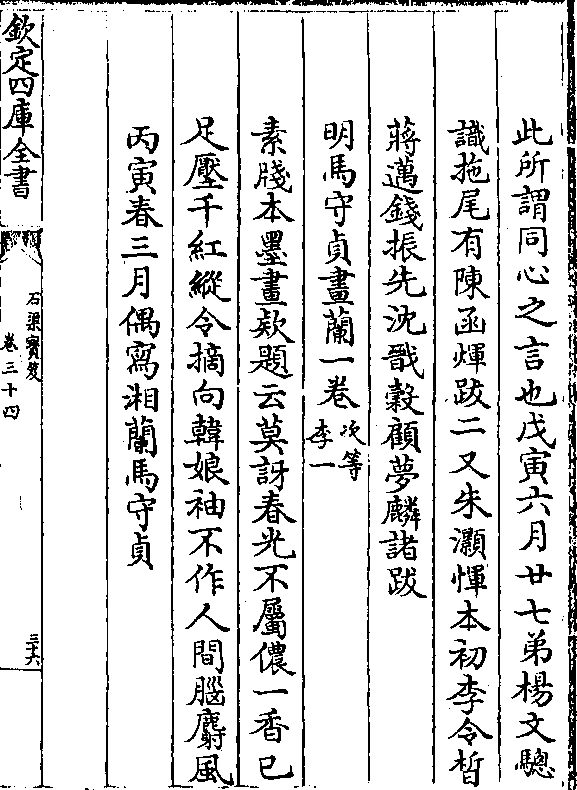 此所謂同心之言也戊寅六月廿七弟楊文驄
識拖尾有陳函煇跋二又朱灝惲本初李令皙
蔣邁錢振先沈戩穀顧夢麟諸跋
明馬守貞畫蘭一卷次等李一
素牋本墨畫欵題云莫訝春光不屬儂一香已
足壓千紅縱令摘向韓娘袖不作人間腦麝風
丙寅春三月偶寫湘蘭馬守貞
欽定四庫全書
石渠寶笈
卷三十四
三六